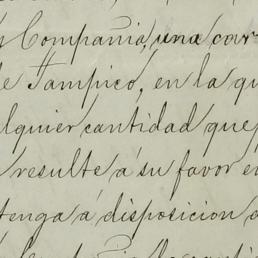 Compañia, una car
de Tampico, en la qu
alquier cantidad que
resulte á su favor en
tenga á disposicion